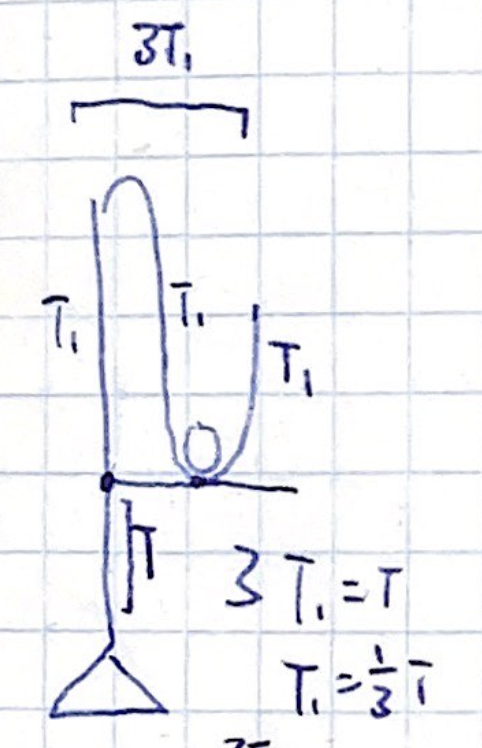 3T₁
T₁ T₁ T₁
T
3 T₁ = T
T₁ = ⅓ T